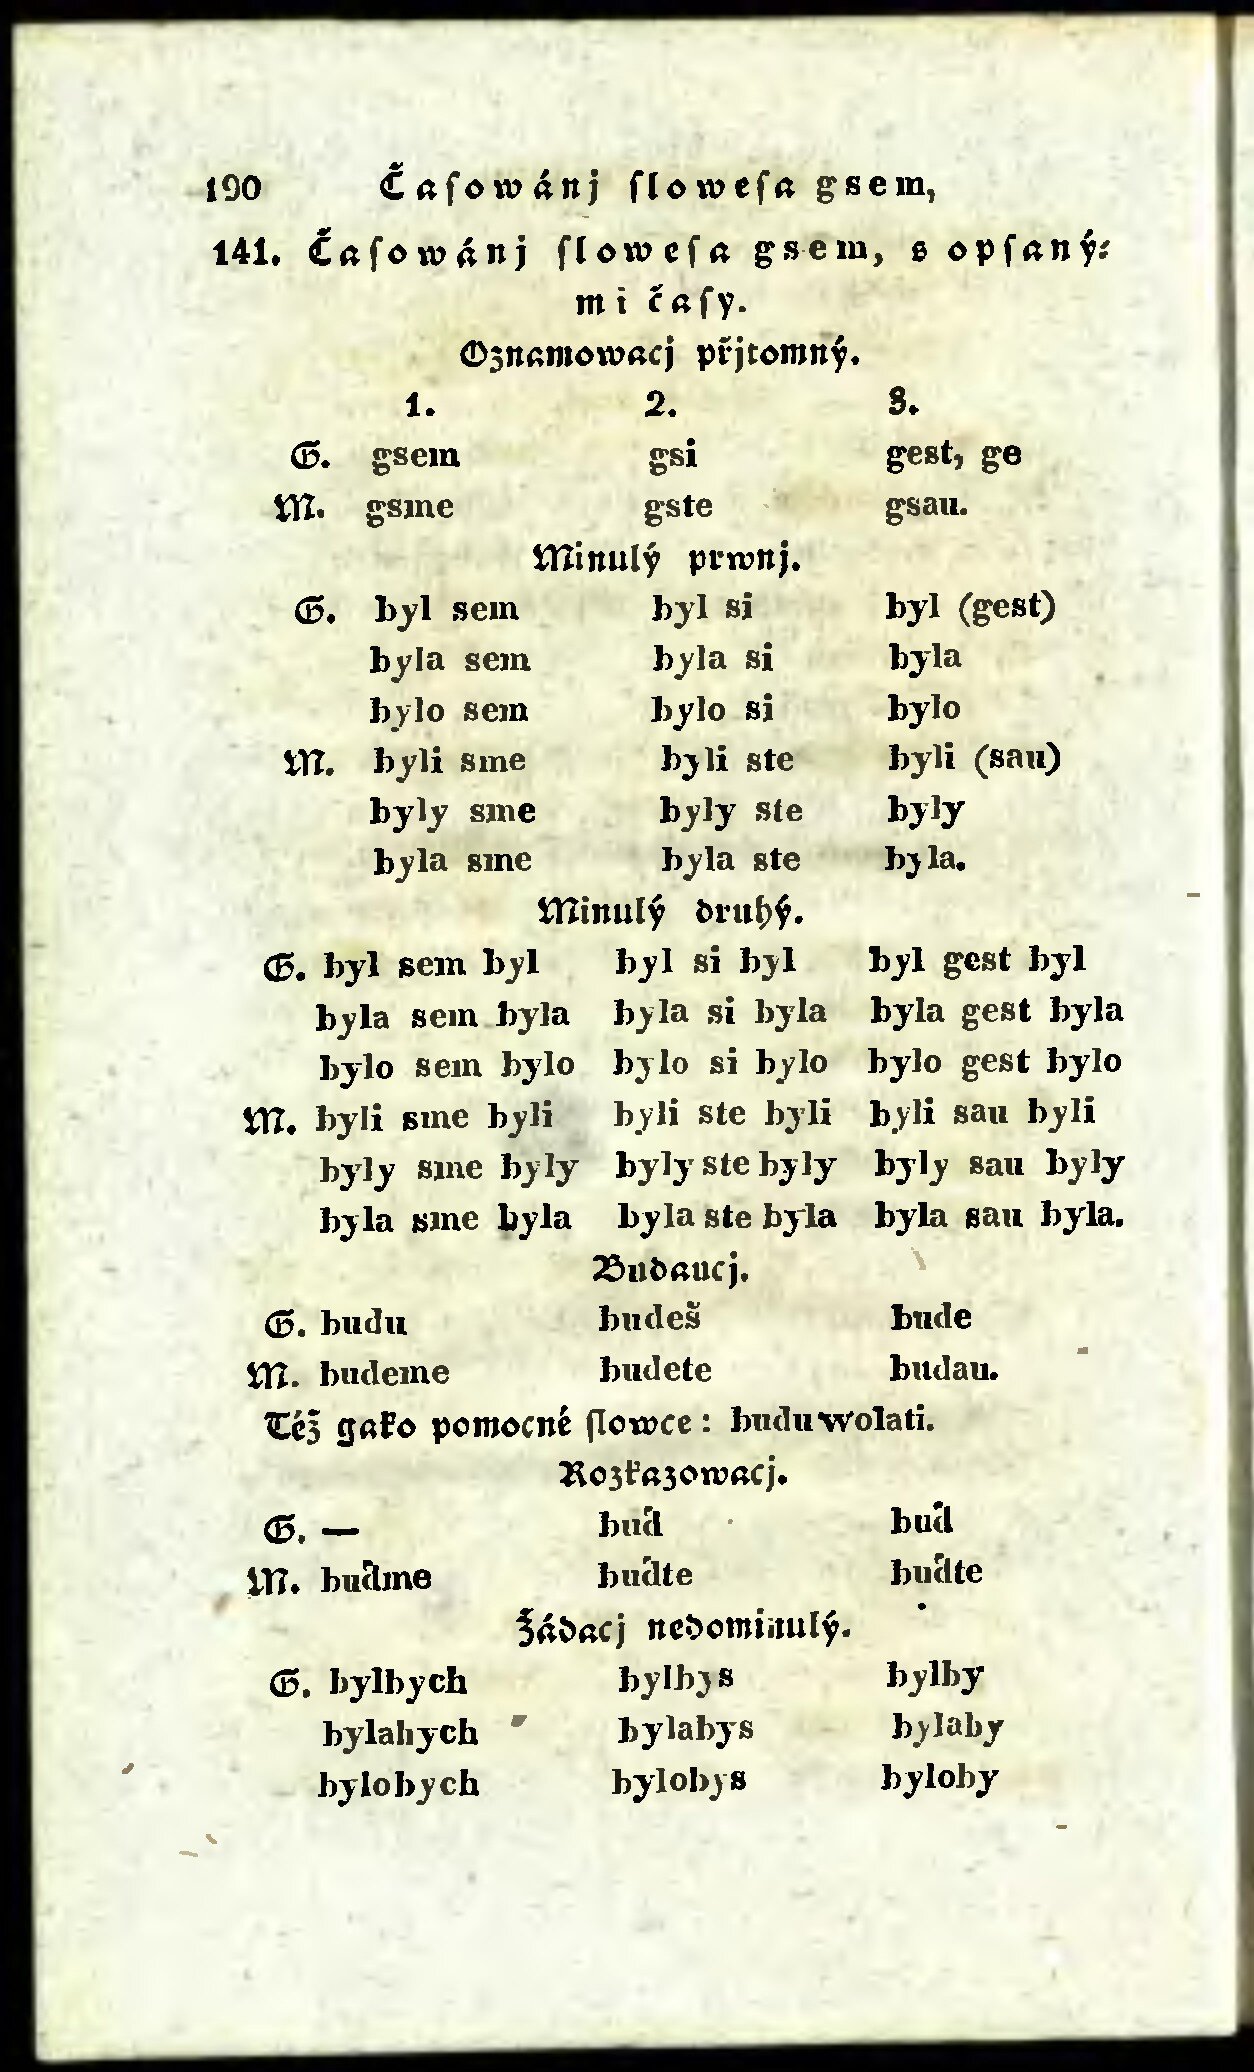 190 Čaſowánj ſloweſa gsem,
141. Čaſowánj ſloweſa gsem, s opſaný⸗
mi čaſy.
Oznamowacj přjtomný.
1. 2. 3.
G. gsem gsi gest, ge
M. gsme gste gsau.
Minulý prwnj.
G. byl sem byl si byl (gest)
byla sem byla si byla
bylo sem bylo si bylo
M. byli sme byli ste byli (sau)
byly sme byly ste byly
byla sme byla ste byla.
Minulý druhý.
G. byl sem byl byl si byl byl gest byl
byla sem byla byla si byla byla gest byla
bylo sem bylo bylo si bylo bylo gest bylo
M. byli sme byli byli ste byli byli sau byli
byly sme byly byly ste byly byly sau byly
byla sme byla byla ste byla byla sau byla.
Budaucj.
G. budu budeš bude
M. budeme budete budau.
Též gako pomocné ſlowce: budu wolati.
Rozkazowacj.
G. — buď buď
M. buďme buďte buďte
Žádacj nedominulý.
G. bylbych bylbys bylby
bylabych bylabys bylaby
bylobych bylobys byloby